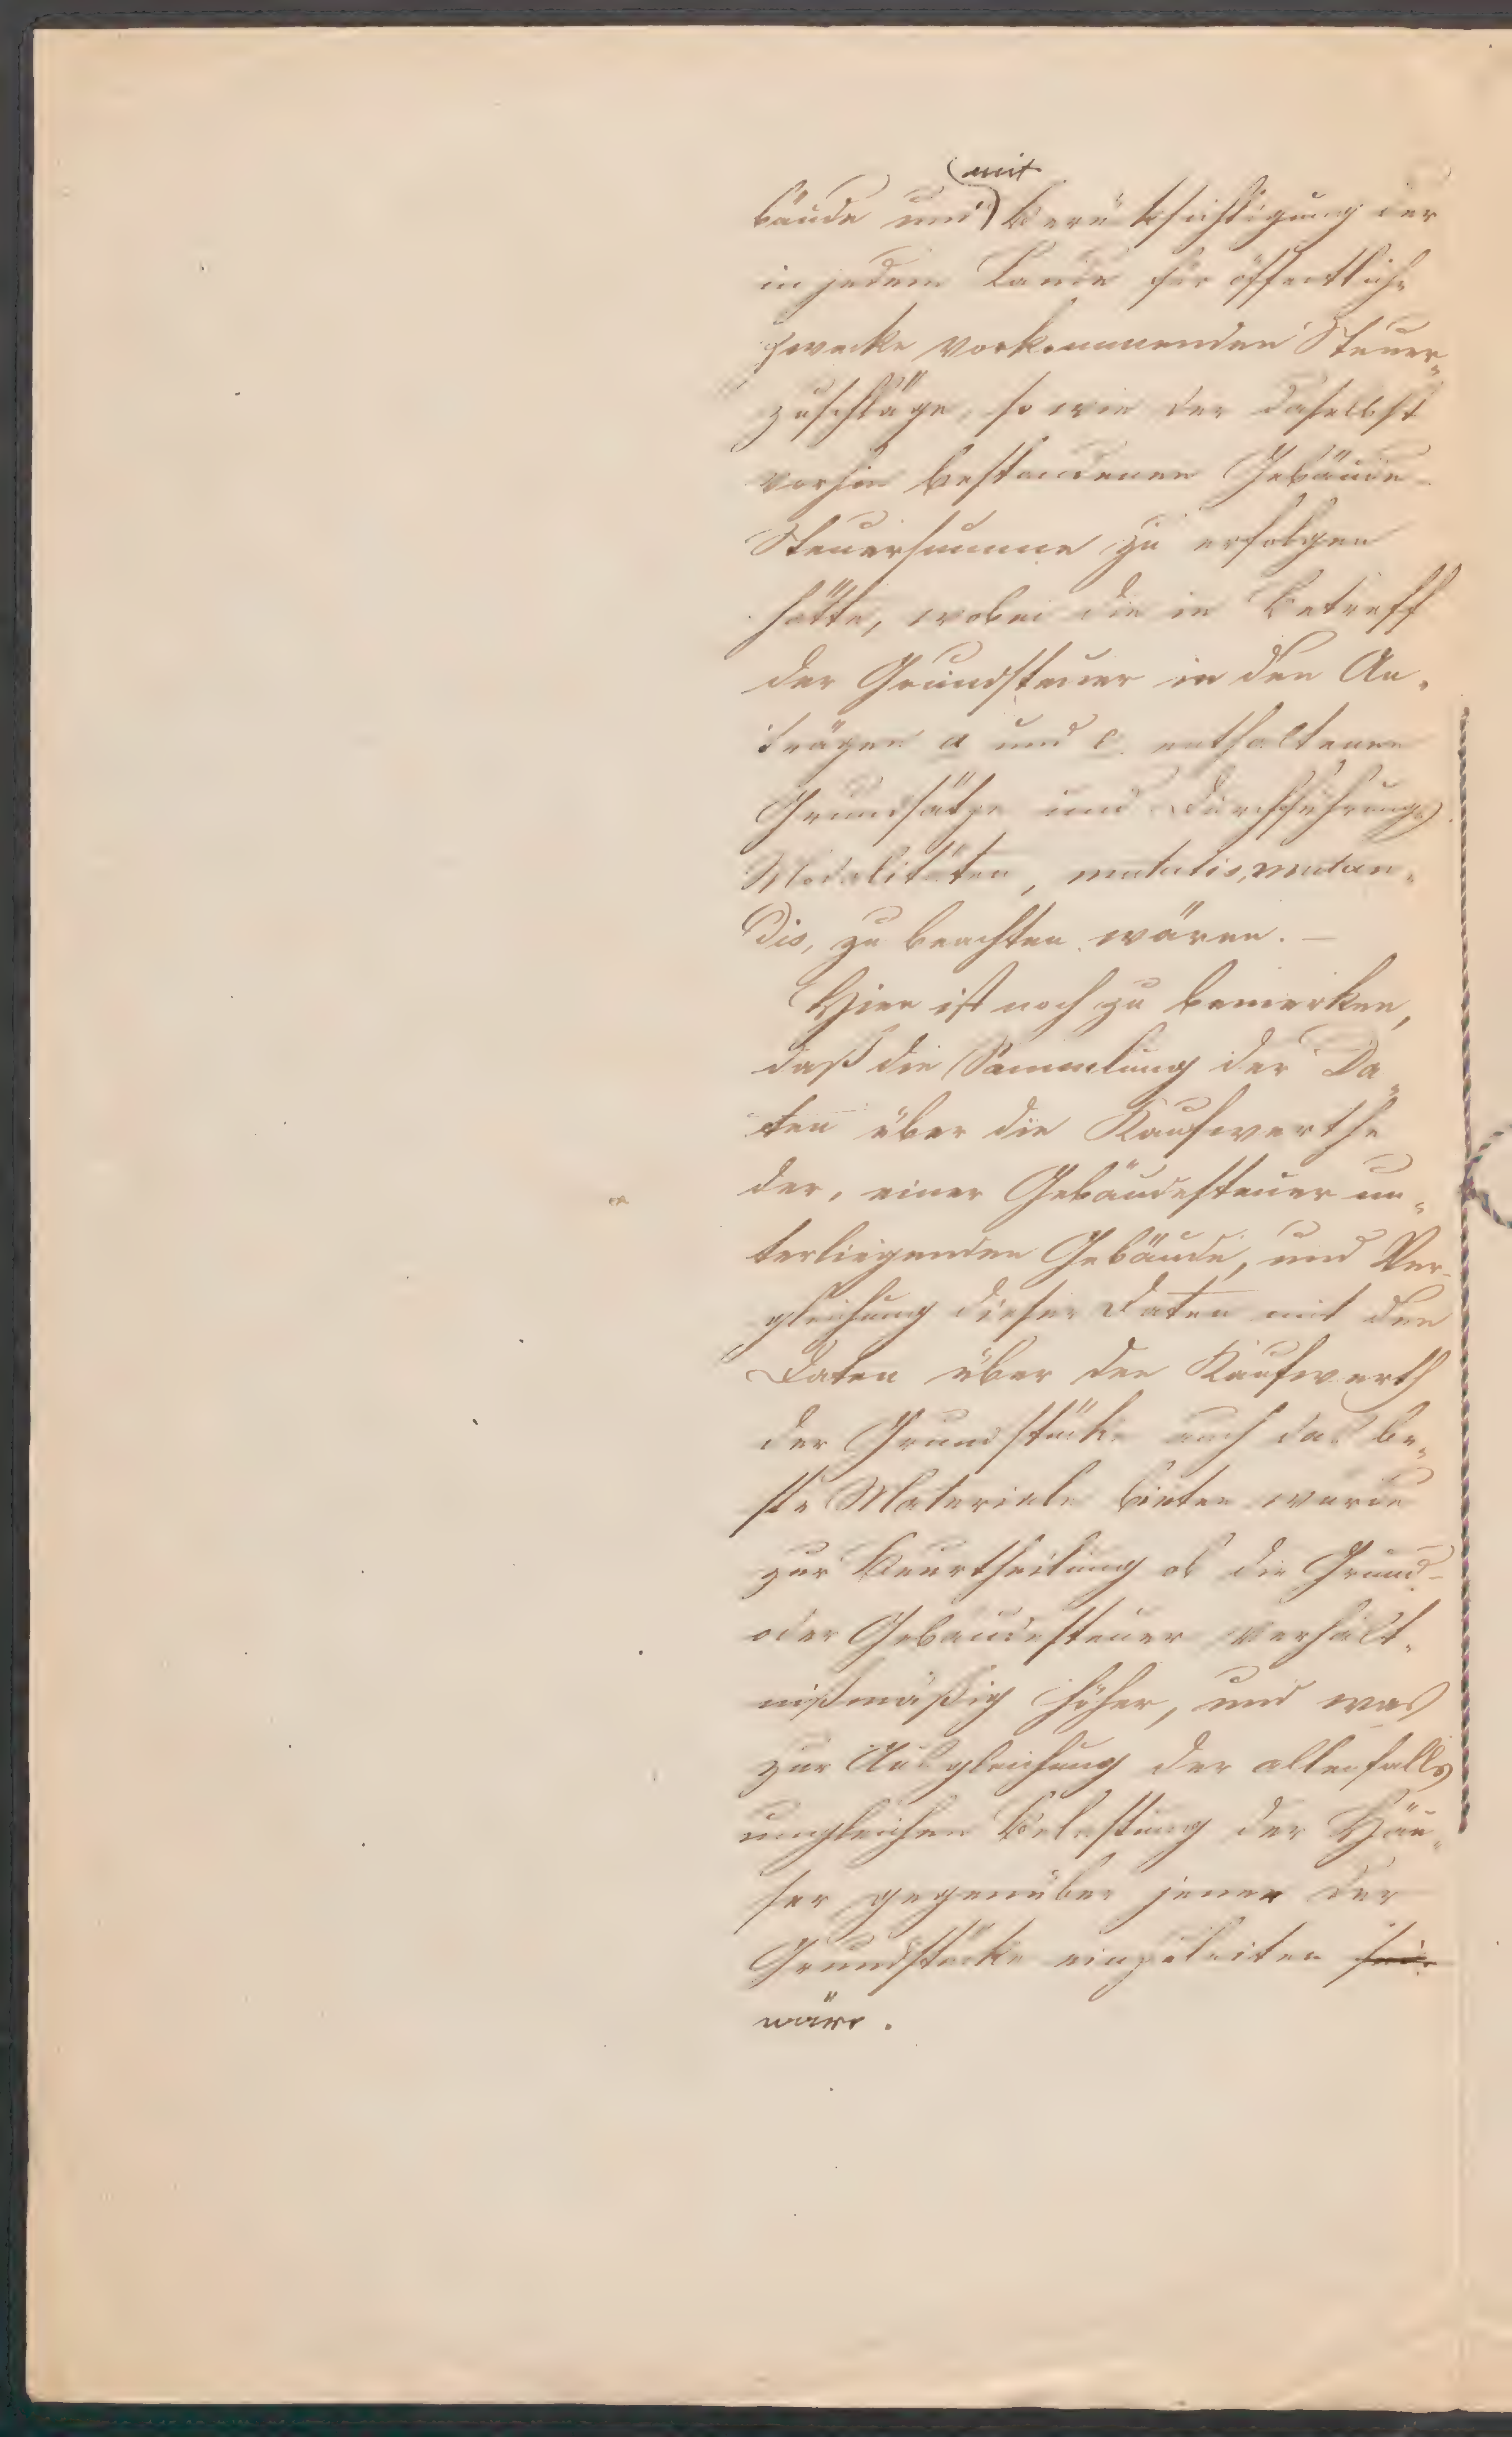 bäude und mit Berücksichtigung der
in jedem Lande für öffentliche
Zwecke vorkommenden Steuer-
zuschläge, so wie der daselbst
vorhin bestandenen Gebäude-
Steuersumme zu erfolgen
hätte, wobei die in Betreff
der Grundsteuer in den An-
trägen a und c. enthaltenen
Grundsätze und Durchführungs
Modalitäten, mutatis, mutan-
dis, zu beachten wären. —
Hier ist noch zu bemerken,
daß die Sammlung der Da-
ten über die Kaufwerthe
der, einer Gebäudesteuer un-
terliegenden Gebäude, und Ver-
gleichung dieser Daten mit den
Daten über den Kaufwerth
der Grundstücke auch das be-
ste Materiale bieten würde
zur Beurtheilung ob die Grund-
oder Gebäudesteuer verhält-
nißmäßig höher, und was
zur Ausgleichung der allenfalls
ungleichen Belastung der Häu-
ser gegenüber jener der
Grundstücke einzuleiten sei.
wäre.